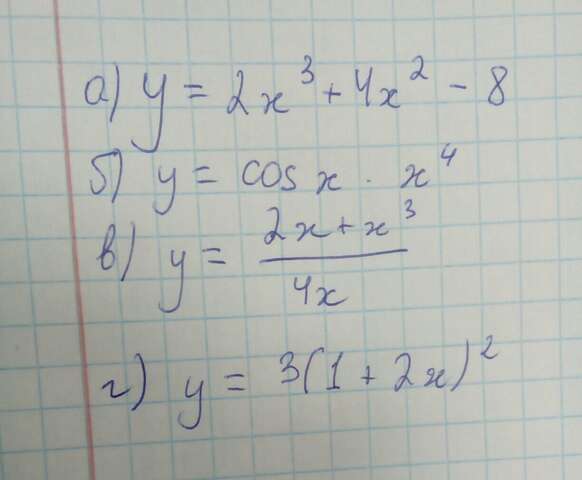 а) y = 2x³ + 4x² - 8
б) y = cos x · x⁴
в) y = (2x + x³) / 4x
г) y = 3(1 + 2x)²